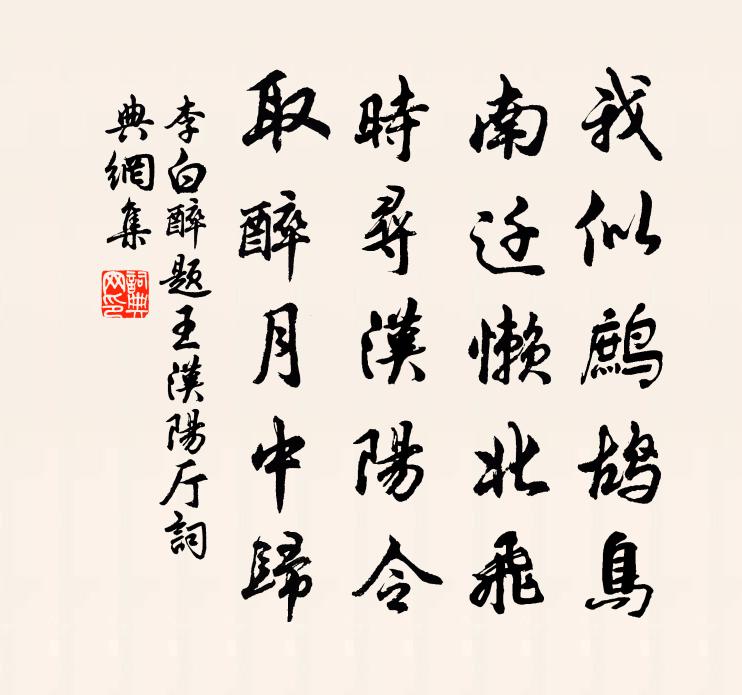 我似鷓鴣鳥
南迁懶北飛
時尋漢陽令
取醉月中歸
李白醉題王漢陽厅詞
典網集
詞典
网印